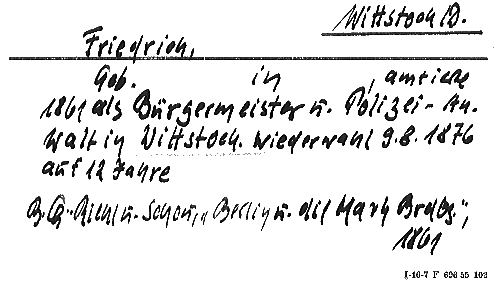 Wittstock D.
Friedrich,
Geb. in , amtierte
1861 als Bürgermeister u. Polizei-An-
walt in Wittstock. Wiederwahl 9.8.1876
auf 12 Jahre
Riehl u. Scheu, "Berlin u. die Mark Brdbg.",
1861
I-16-7 F 626 55 102